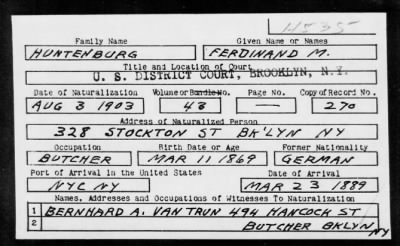 H535
Family Name
Given Name or Names
HUNTENBURG
FERDINAND M.
Title and Location of Court
U. S. DISTRICT COURT, BROOKLYN, N.Y.
Date of Naturalization
Volume or Bundle No.
Page No.
Copy of Record No.
AUG 3 1903
43
—
270
Address of Naturalized Person
328 STOCKTON ST BK'LYN NY
Occupation
Birth Date or Age
Former Nationality
BUTCHER
MAR 11 1869
GERMAN
Port of Arrival in the United States
Date of Arrival
NYC NY
MAR 23 1889
Names, Addresses and Occupations of Witnesses To Naturalization
1 BERNHARD A. VAN TRUN 494 HANCOCK ST
2 BUTCHER BKLYN NY